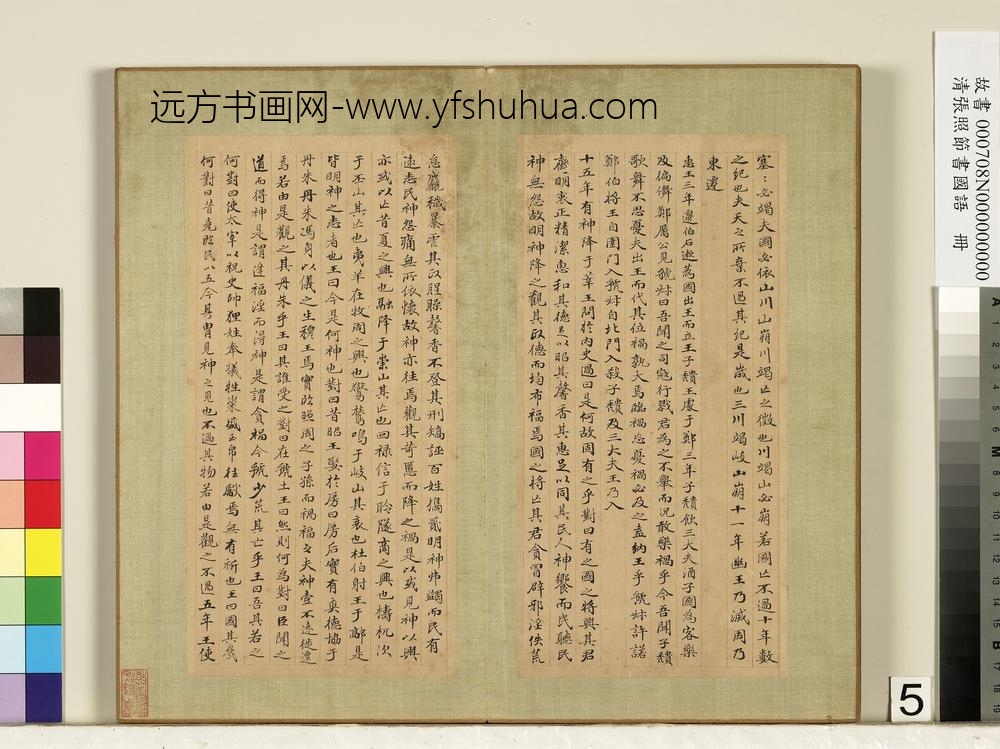 远方书画网-www.yfshuhua.com
塞〻必竭夫國必依山川山崩川竭亡之徵也川竭山必崩若國亡不過十年數
之紀也夫天之所棄不過其紀是歲也三川竭岐山崩十一年幽王乃滅周乃
東遷
惠王三年邊伯石遫蔿國出王而立王子頽王處于鄭三年子頽飲三大夫酒子國為客樂
及徧儛鄭厲公見虢叔曰吾聞之司寇行戮君為之不舉而況敢樂禍乎今吾聞子頽
歌舞不思憂夫出王而代其位禍孰大焉臨禍忘憂禍必及之盍納王乎虢叔許諾
鄭伯將王自圉門入虢叔自北門入殺子頽及三大夫王乃入
十五年有神降于莘王問於內史過曰是何故固有之乎對曰有之國之將興其君
齊明衷正精潔惠和其德足以昭其馨香其惠足以同其民人神饗而民聽民
神無怨故明神降之觀其政德而均布福焉國之將亡其君貪冒辟邪淫佚荒
怠麤穢暴虐其政腥臊馨香不登其刑矯誣百姓攜貳明神弗蠲而民有
遠志民神怨痛無所依懷故神亦往焉觀其苛慝而降之禍是以或見神以興
亦或以亡昔夏之興也融降于崇山其亡也回祿信于聆隧商之興也檮杌次
于丕山其亡也夷羊在牧周之興也鸑鷟鳴于岐山其衰也杜伯射王于鄗是
皆明神之志者也王曰今是何神也對曰昔昭王娶於房曰房后實有爽德協于
丹朱丹朱馮身以儀之生穆王焉實臨照周之子孫而禍福之夫神壹不遠徙遷
焉若由是觀之其丹朱乎王曰其誰受之對曰在虢土王曰然則何為對曰臣聞之
道而得神是謂逢福淫而得神是謂貪禍今虢少荒其亡乎王曰吾其若之
何對曰使太宰以祝史帥狸姓奉犧牲粢盛玉帛往獻焉無有祈也王曰國其幾
何對曰昔堯臨民以五今其胄見神之見也不過其物若由是觀之不過五年王使
故書 000708N000000000
清張照節書國語 冊
5